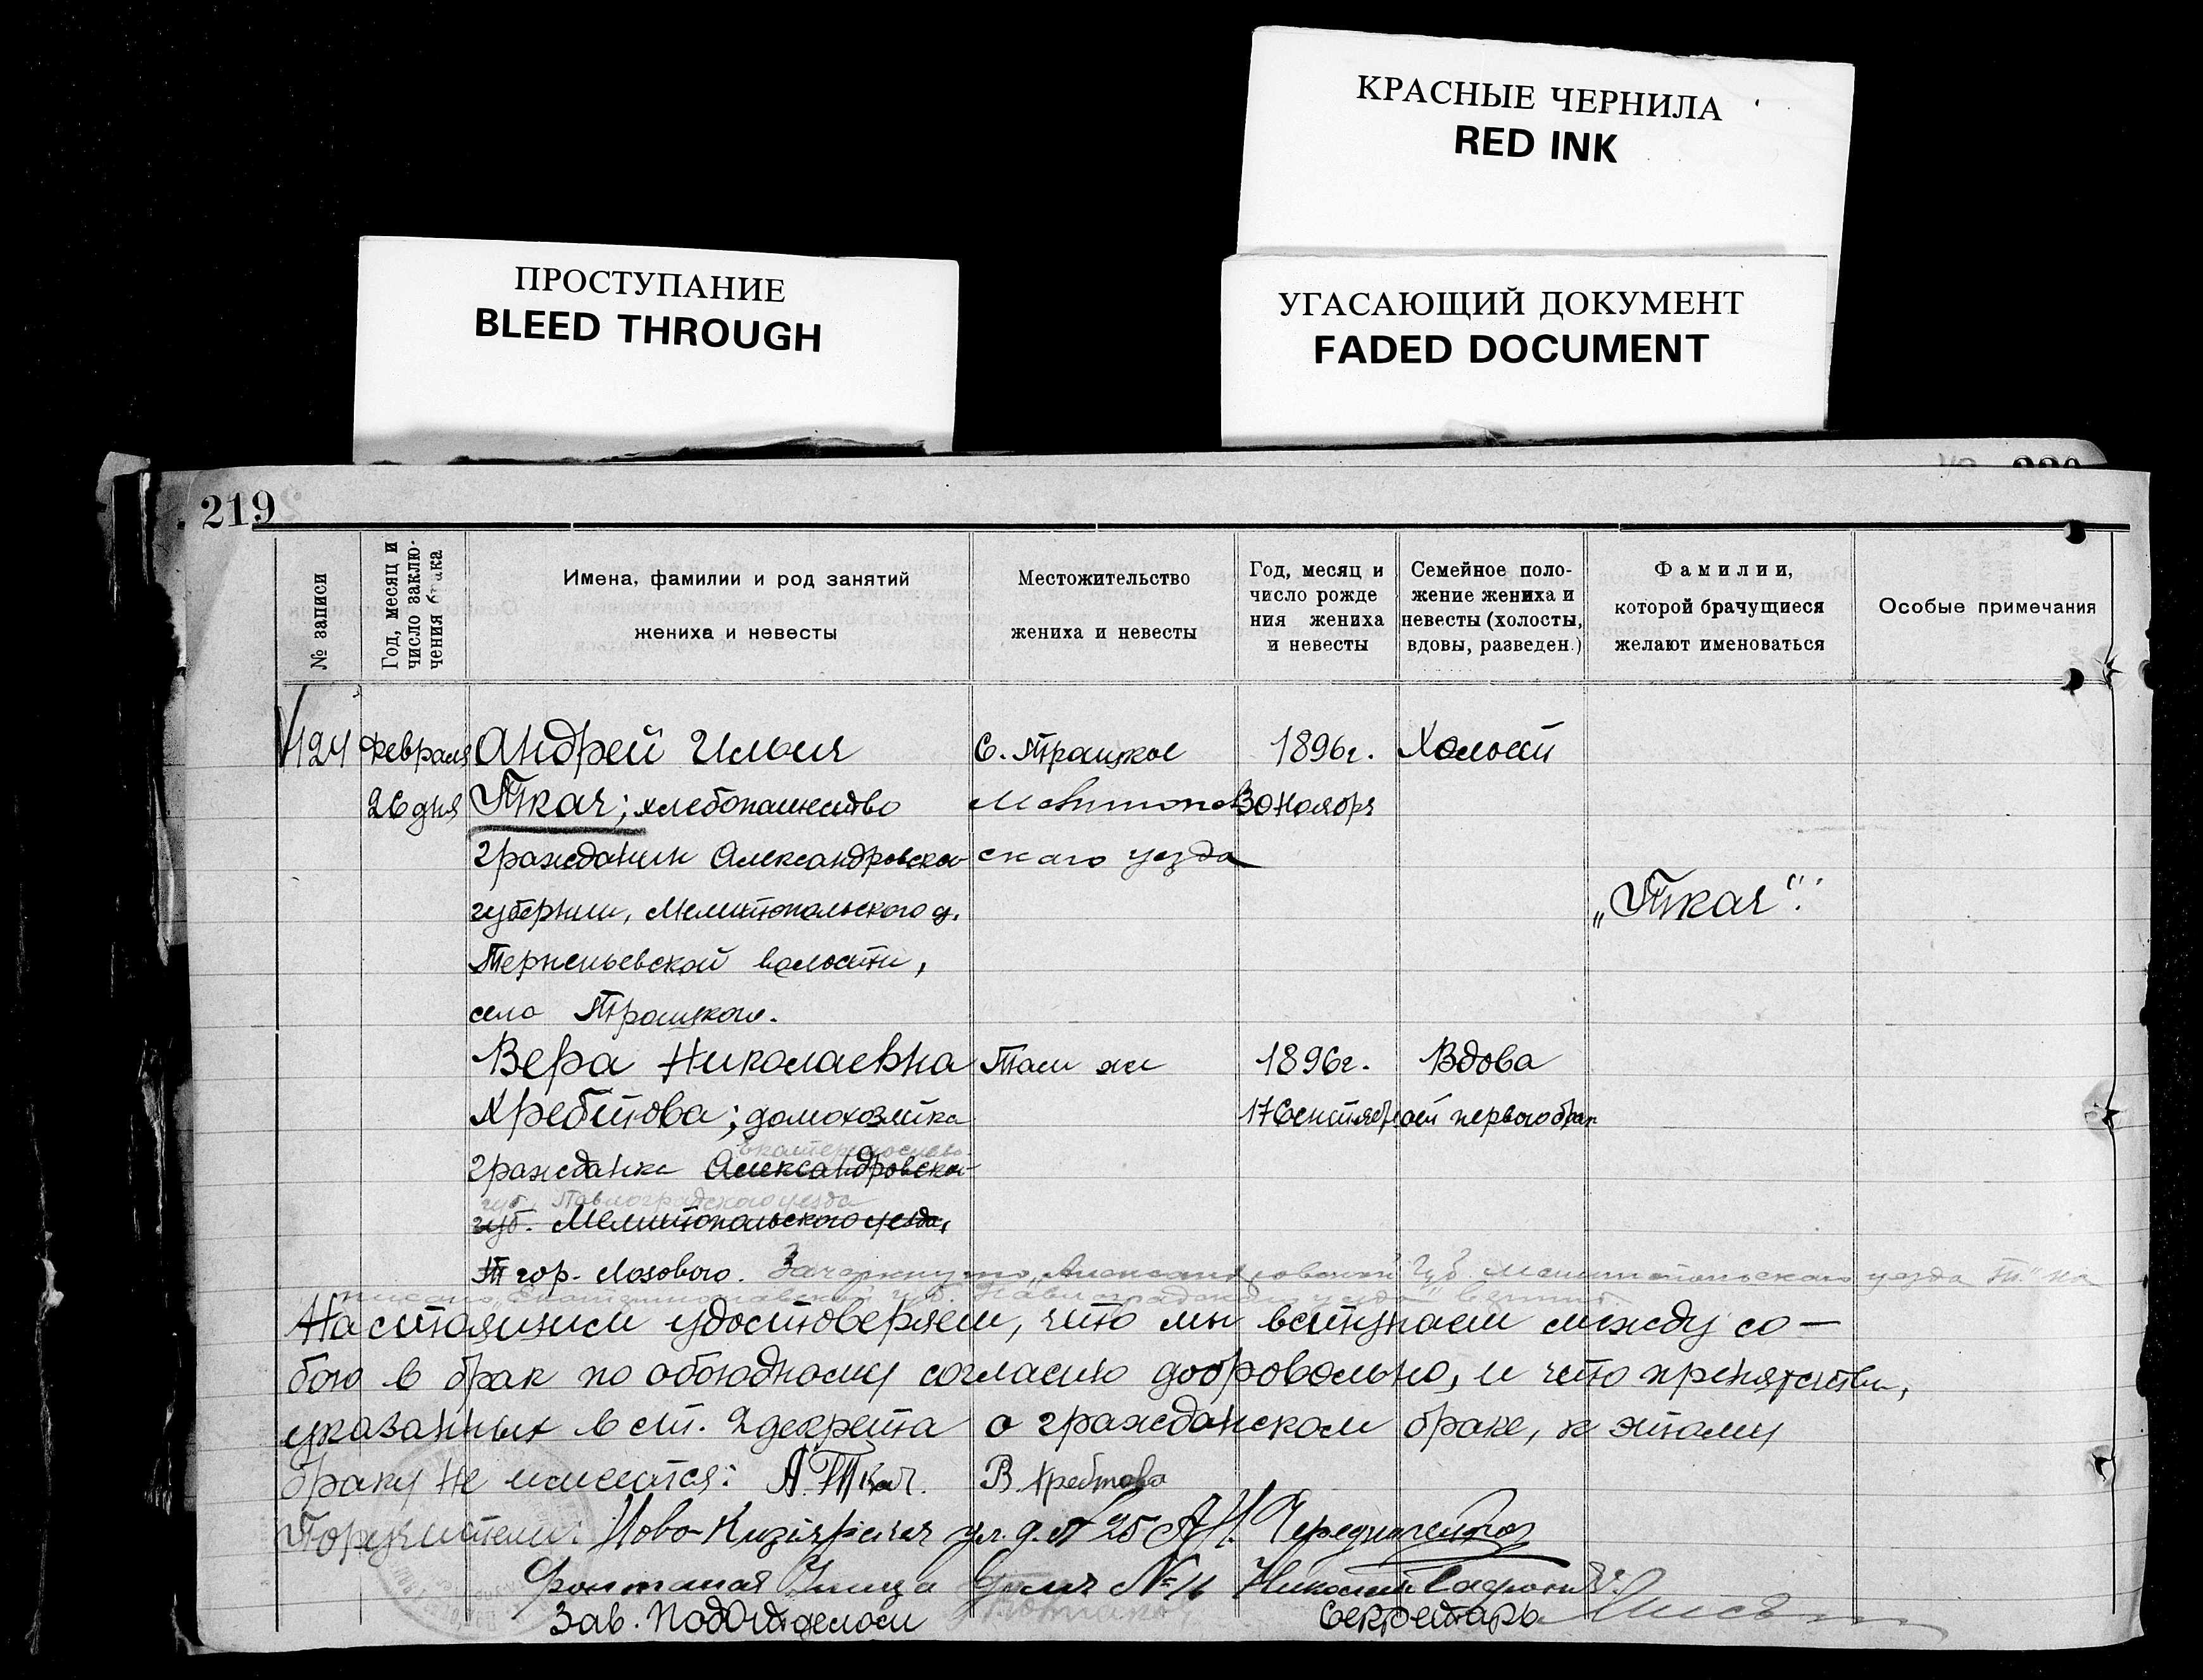 КРАСНЫЕ ЧЕРНИЛА
RED INK
ПРОСТУПАНИЕ
BLEED THROUGH
УГАСАЮЩИЙ ДОКУМЕНТ
FADED DOCUMENT
219
№ записи
Год, месяц и число заклю-чения брака
Имена, фамилии и род занятий жениха и невесты
Местожительство жениха и невесты
Год, месяц и число рожде ния жениха и невесты
Семейное поло-жение жениха и невесты (холосты, вдовы, разведен.)
Фамилии, которой брачущиеся желают именоваться
Особые примечания
124 Февраля Андрей Ильич С. Траицкое 1896г. Холост
26 дня Ткач; хлебопашество Мелитопол 30 Ноября
гражданин Александровской скаго уезда
губернии, Мелитопольского у. „Ткач".
Терпеньевской волости,
село Траицкого.
Вера Николаевна Там же 1896г. Вдова
Хребтова; домохозяйка 17 Сентября от первого брак
Екатеринослав.
гражданка Александровской
губ. Павлоградского уезда
губ. Мелитопольского уезда,
гор. Лозового. Зачеркнуто „Александровской губ Мелитопольскаго уезда Т." на
писано „Екатеринославской губ. Павлоградскаго уезда" верить
Настоящим удостоверяем, что мы вступаем между со-
бою в брак по обоюдному согласию добровольно, и что препятстви,
указанных в ст. 2 декрета о гражданском браке, к этому
браку не имеются: А. Ткач. В. Хребтова
Поручители: Ново-Кизіярская ул. д. № 25
Фонтаная Улица Дом № 11 Николай
Зав. ПодОтделом Секретарь